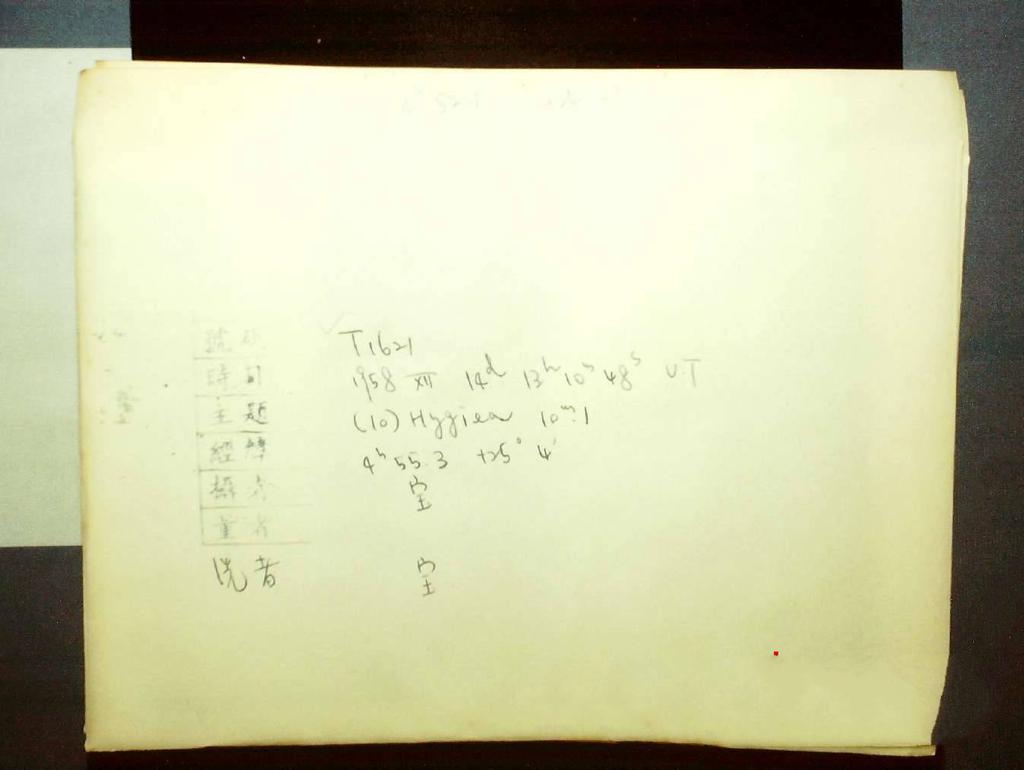 號 T1621
時日 1958 XII 14d 13h 10m 48s U.T
主題 (10) Hygiea 10m.1
經緯 4h 55.3 +25° 4'
攝者 宝
量者
洗者 宝